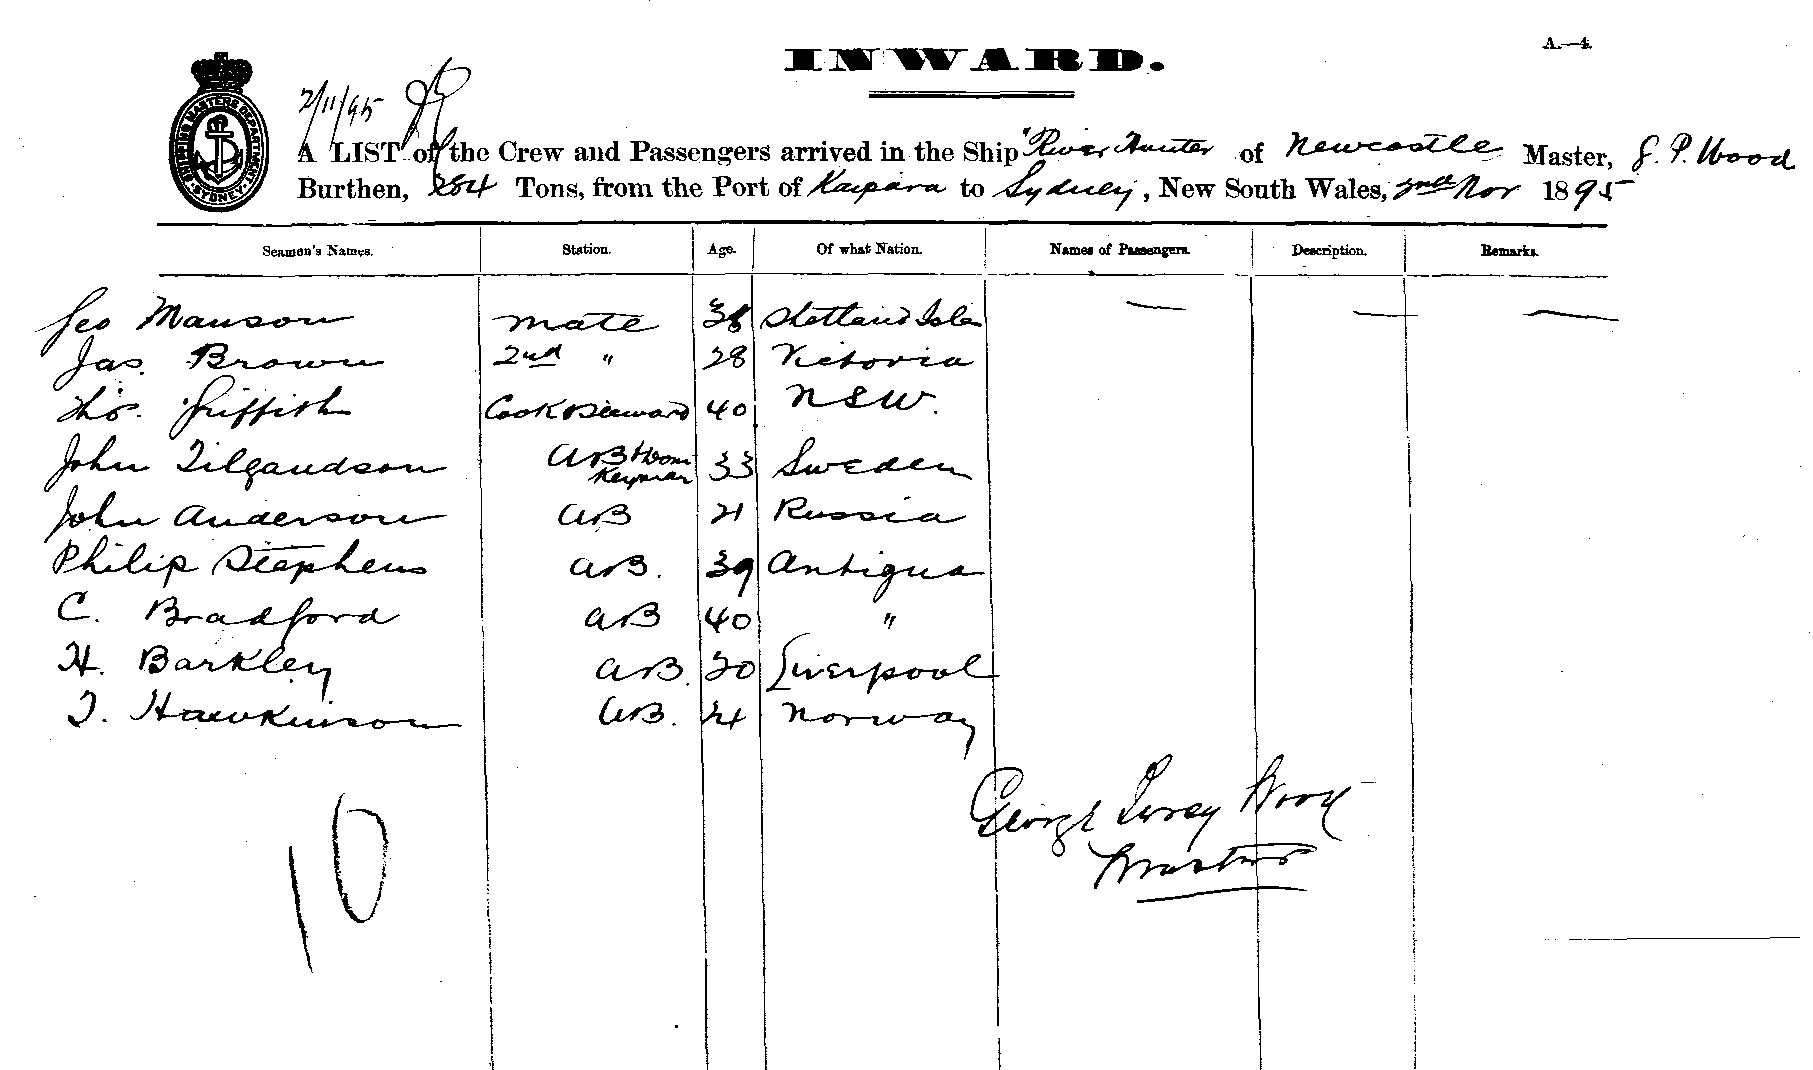 INWARD.
A.—4.
SHIPPING MASTERS DEPARTMENT SYDNEY
2/11/95
A LIST of the Crew and Passengers arrived in the Ship "River Hunter of Newcastle Master, G. P. Wood
Burthen, 284 Tons, from the Port of Kaipara to Sydney, New South Wales, 2nd Nov 1895
Seamen's Names. Station. Age. Of what Nation. Names of Passengers. Description. Remarks.
Geo Manson Mate 38 Shetland Isles — — —
Jas. Brown 2nd " 28 Victoria
Thos. Griffith Cook & Steward 40 NSW.
John Tilgandson AB 33 Sweden
John Anderson AB 21 Russia
Philip Stephens AB. 39 Antigua
C. Bradford AB 40 "
H. Barkley AB. 20 Liverpool
T. Hawkinson AB. 24 Norway
George Wood
Master
10